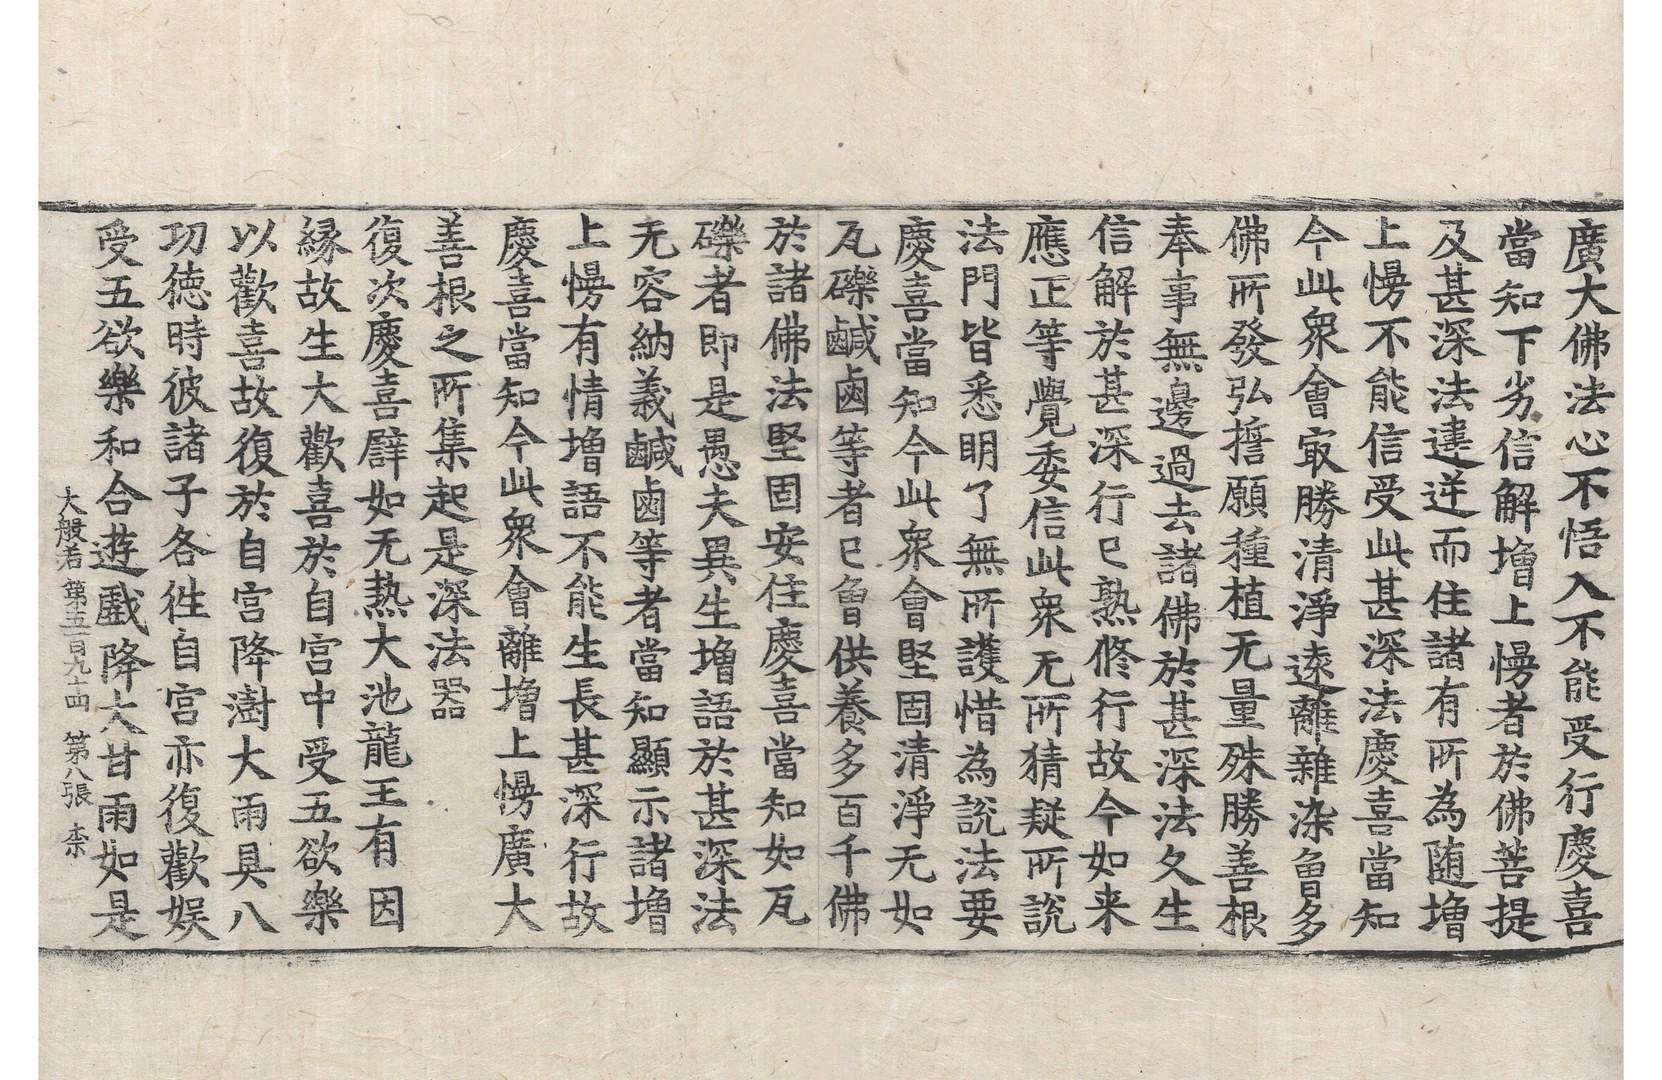 廣大佛法心不悟入不能受行慶喜
當知下劣信解增上慢者於佛菩提
及甚深法違逆而住諸有所為随增
上慢不能信受此甚深法慶喜當知
今此衆會冣勝清淨遠離雜染曾多
佛所發弘誓願種植无量殊勝善根
奉事無邊過去諸佛於甚深法久生
信解於甚深行已熟修行故今如来
應正等覺委信此衆无所猜疑所說
法門皆悉明了無所護惜為說法要
慶喜當知今此衆會堅固清淨无如
瓦礫鹹鹵等者已曾供養多百千佛
於諸佛法堅固安住慶喜當知如瓦
礫者即是愚夫異生增語於甚深法
无容納義鹹鹵等者當知顯示諸增
上慢有情增語不能生長甚深行故
慶喜當知今此衆會離增上慢廣大
善根之所集起是深法器
復次慶喜譬如无热大池龍王有因
緣故生大歡喜於自宮中受五欲樂
以歡喜故復於自宮降澍大雨具八
功德時彼諸子各往自宮亦復歡娛
受五欲樂和合遊戲降大甘雨如是
大般若第五百九十四 第八張 柰